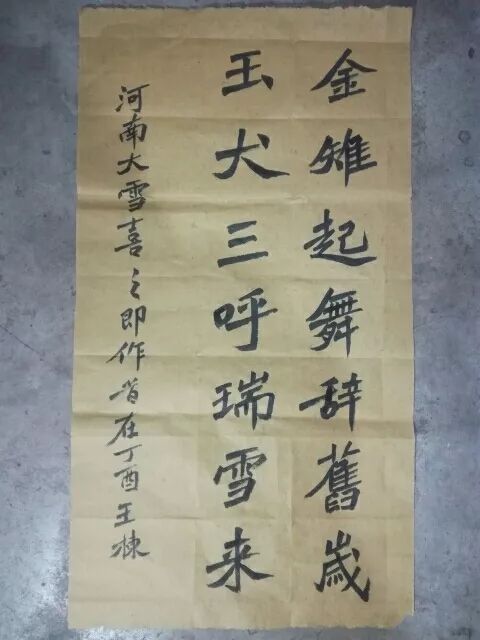 金雉起舞辞舊嵗
玉犬三呼瑞雪来
河南大雪喜之即作旹在丁酉王